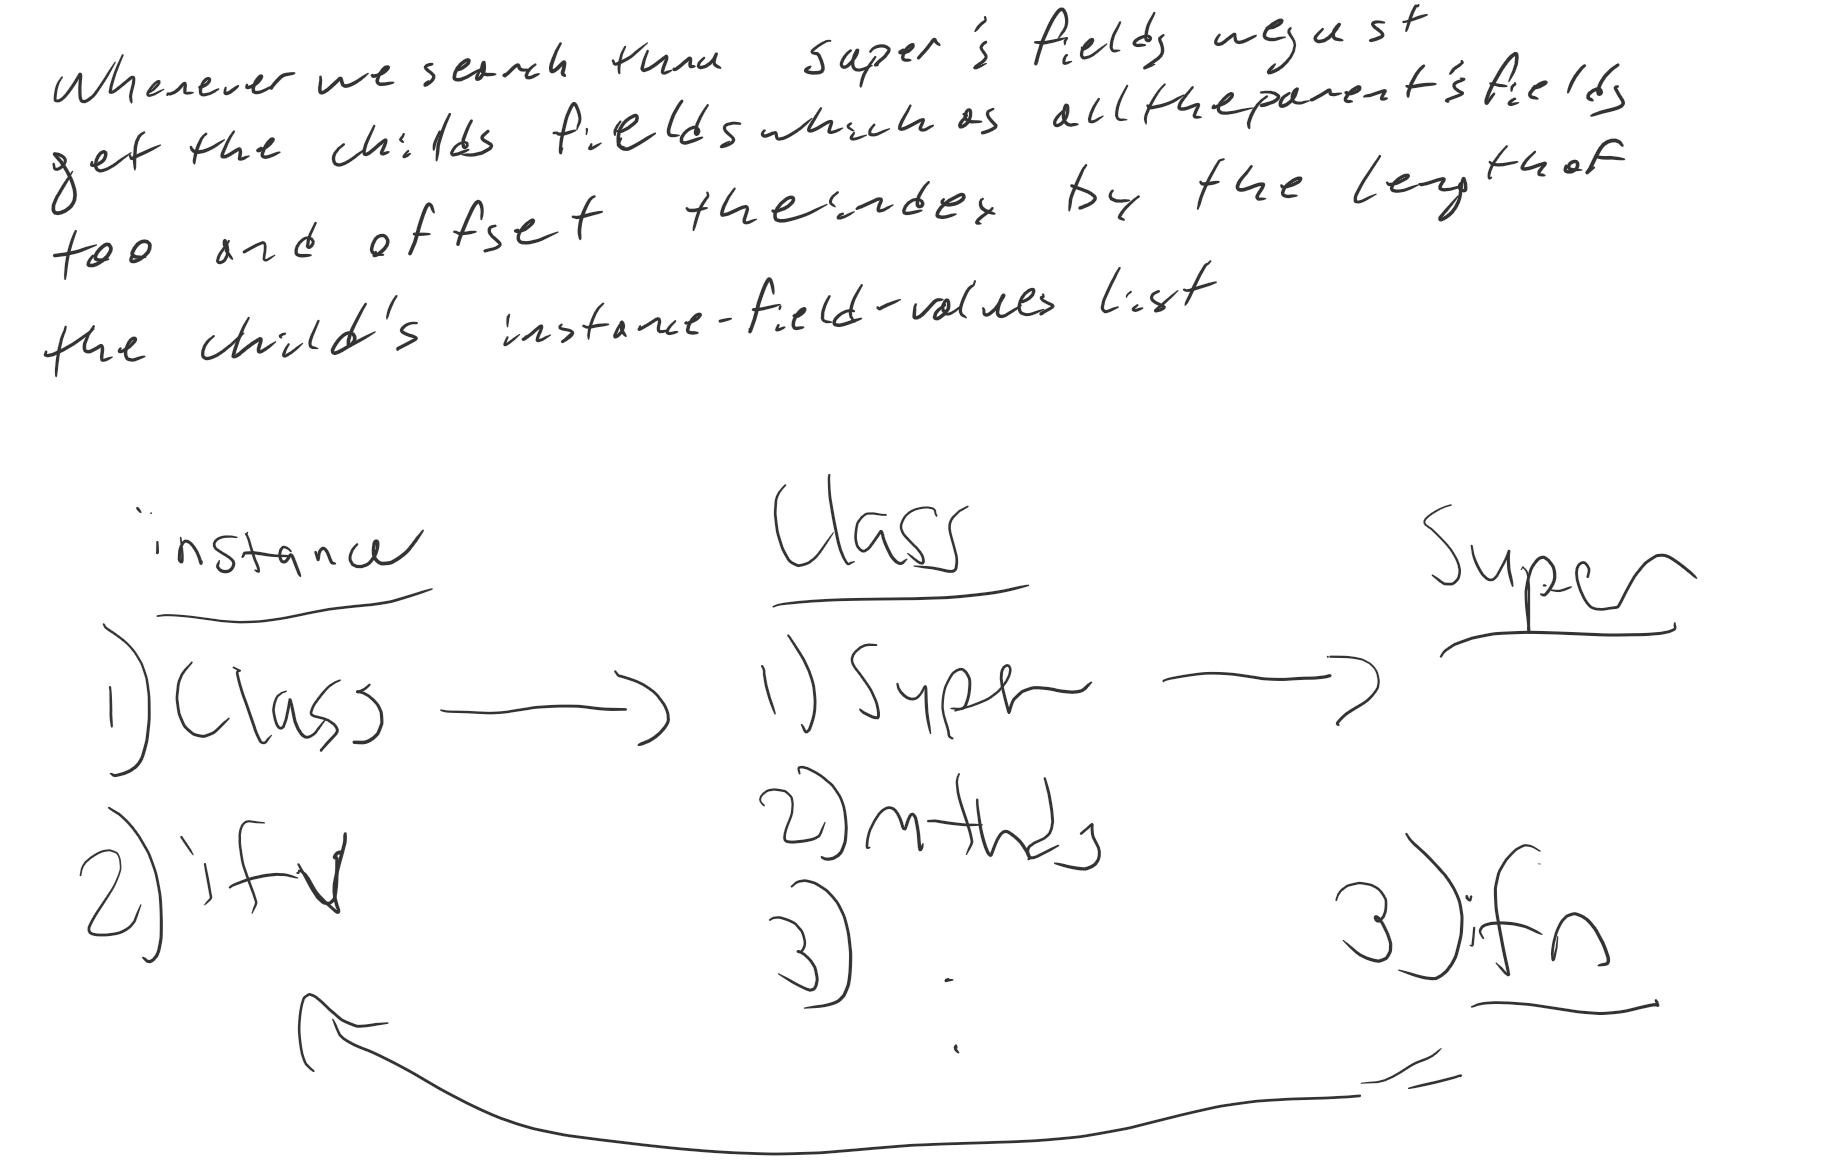 Whenever we search thru super's fields we just
get the childs fields which as all the parent's fields
too and offset the index by the length of
the child's instance-field-values list
instance Class Super
1) Class 1) Super
2) ifv 2) mthds
3) 3) ifn